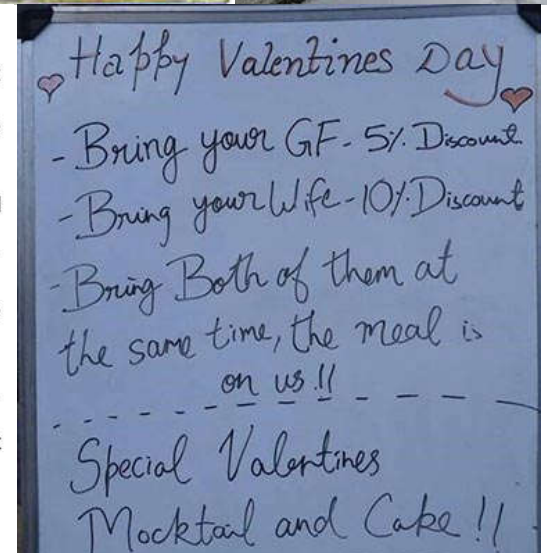 Happy Valentines Day
- Bring your GF - 5% Discount
- Bring your Wife - 10% Discount
- Bring Both of them at
the same time, the meal is
on us !!
Special Valentines
Mocktail and Cake !!